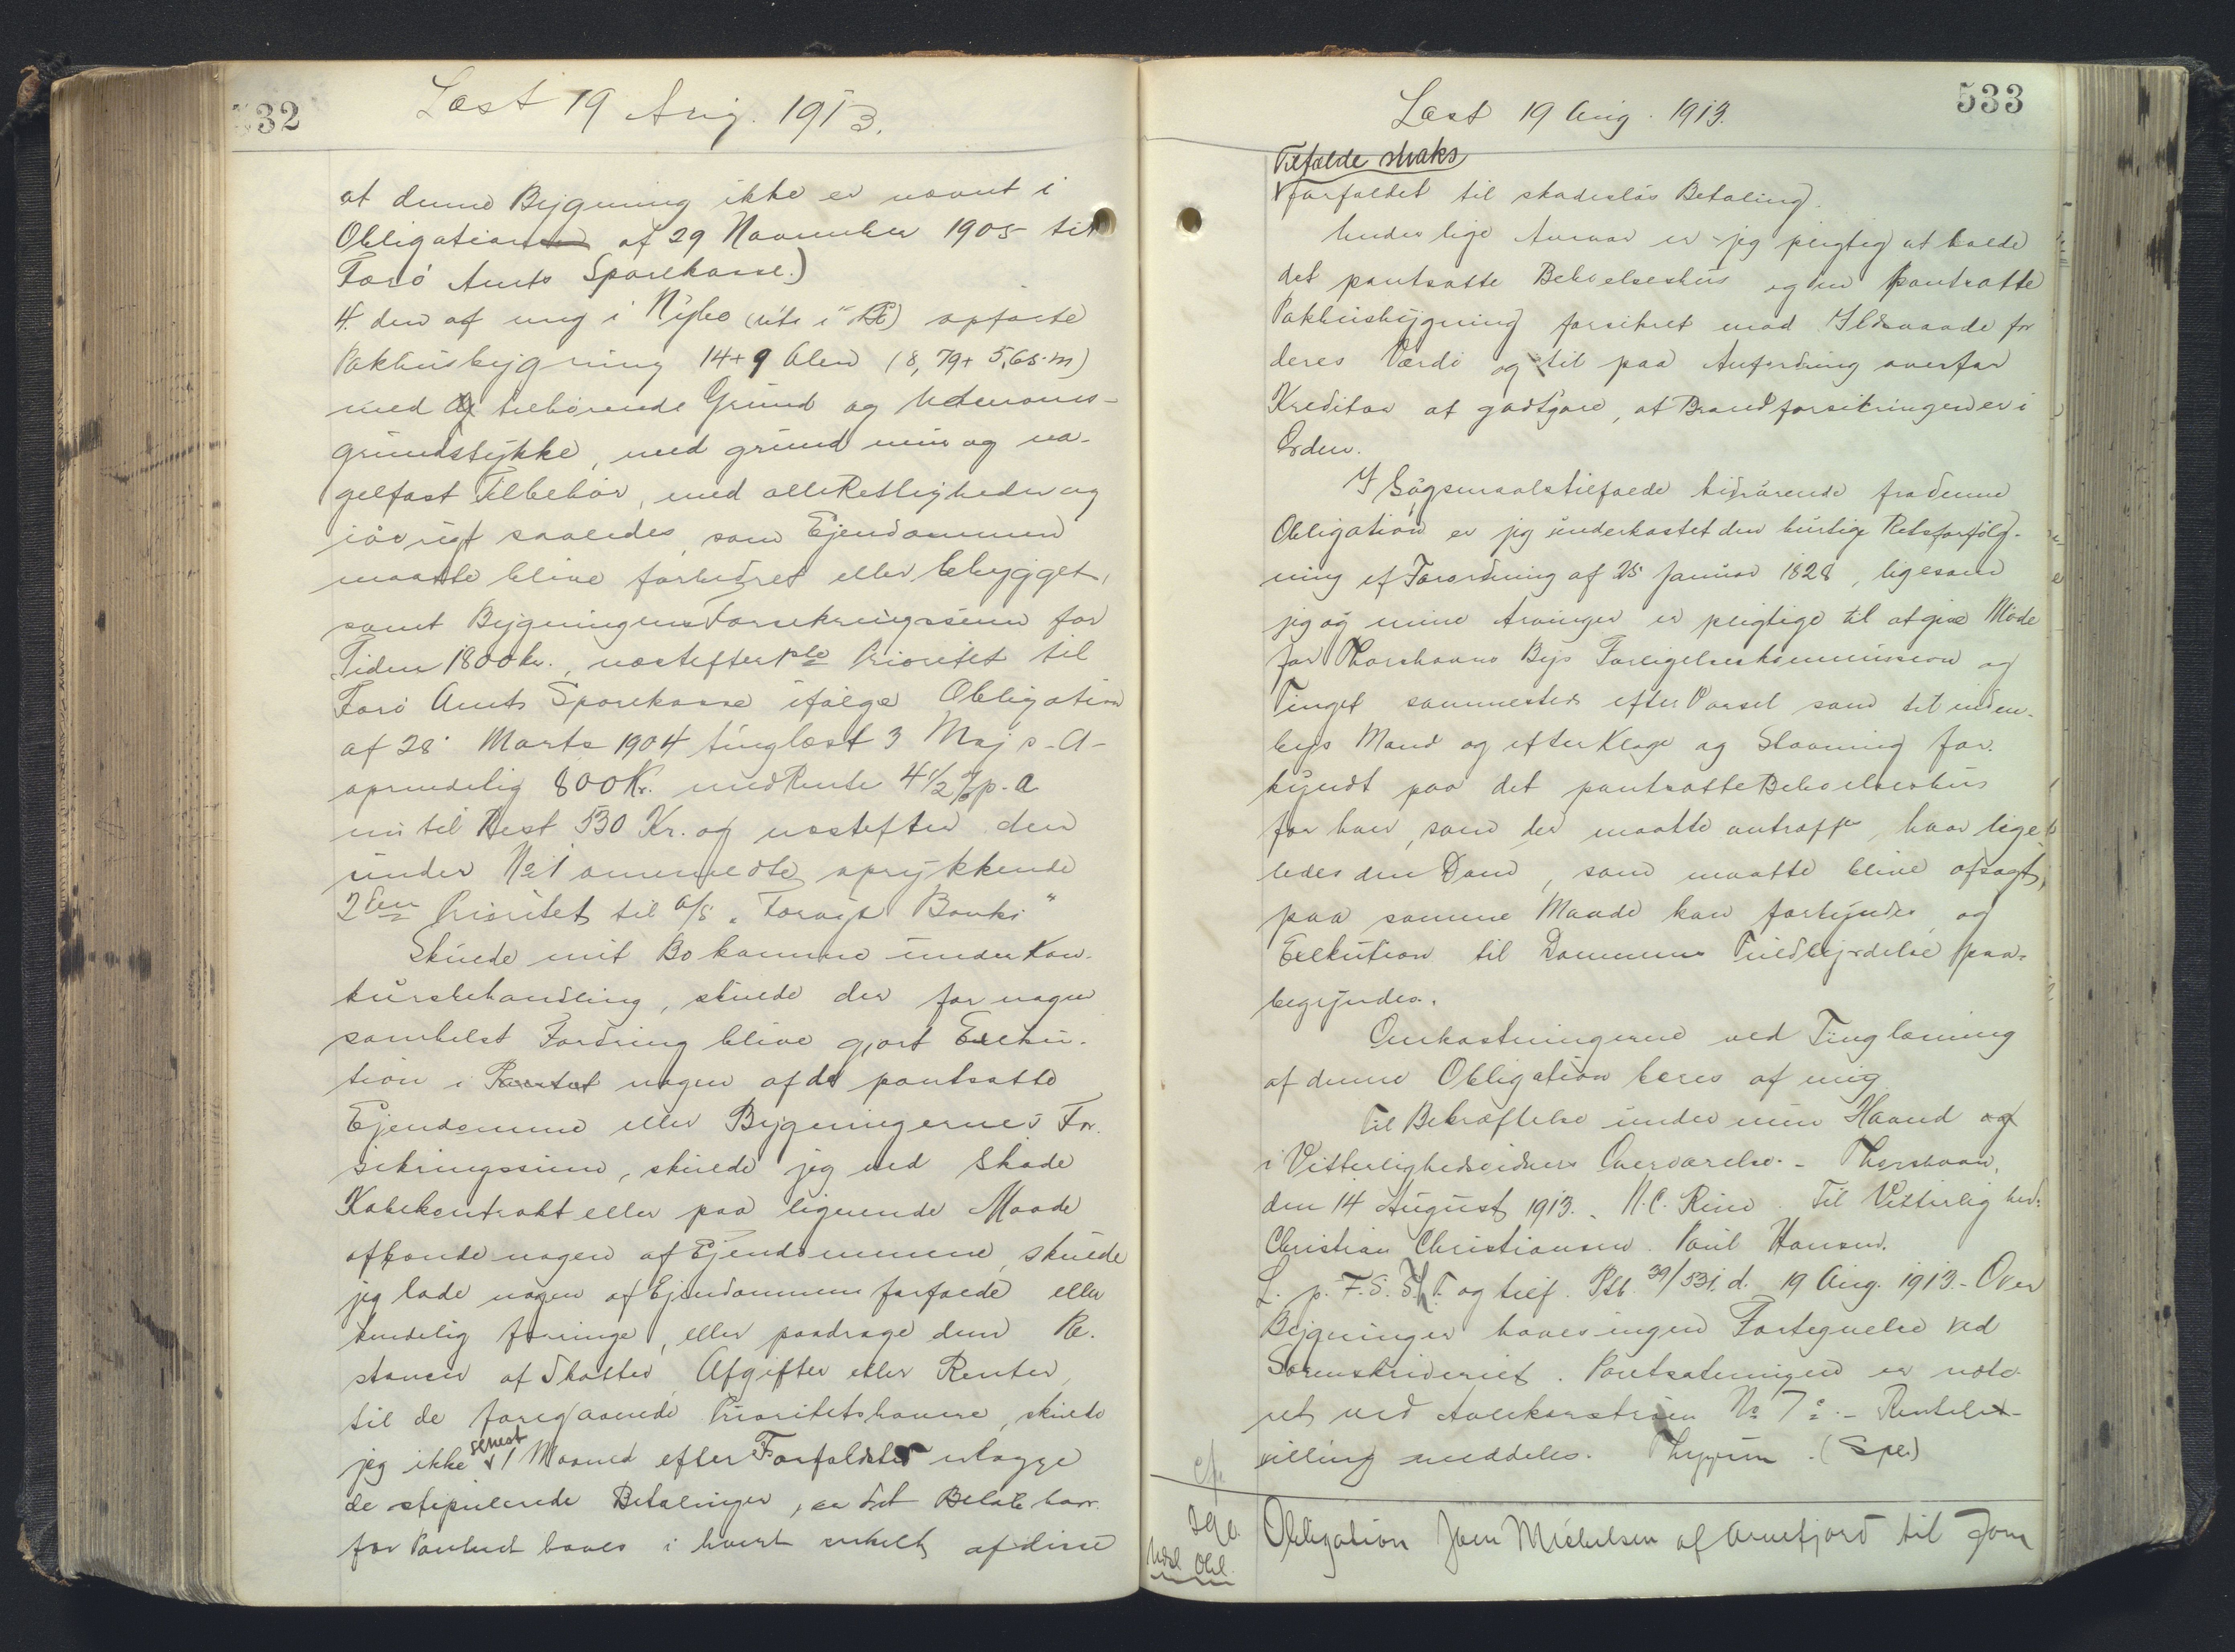 532
Læst 19 Aug. 1913.
at denne Bygning ikke er nævnt i
Obligationen af 29 November 1905 til
Færö Amts Sparekasse.)
4. den af mig i Nybo (úti i ) opførte
Pakhusbygning 14+9 Alen (8,79+5,65 m)
med tilhørende Grund og Udenoms-
grundstykke, med grund mur og na-
gelfast Tilbehör, med alle Rettigheder og
iövrigt saaledes, som Ejendommen
maatte blive forbedret eller bebygget,
samt Bygningens Forsikringssum for
Tiden 1800 kr., næstefter 1ste Prioritet til
Færö Amts Sparekasse ifölge Obligation
af 28. Marts 1904 tinglæst 3 Maj s. A.
oprindelig 800 Kr. med Rente 4 1/2 % p. a
nu til Rest 530 Kr. og næstefter den
under No 1 ommeldte oprykkende
2den Prioritet til A/S "Foroya Banki"
Skulde mit Bo komme under Kon-
kursbehandling, skulde der for nogen
somhelst Fordring blive gjort Exeku-
tion i Pantet nogen af de pantsatte
Ejendomme eller Bygningernes For-
sikringssum, skulde jeg ved Skøde
Købekontrakt eller paa lignende Maade
afhænde nogen af Ejendommene, skulde
jeg lade nogen af Ejendommene forfalde eller
kendelig forringe, eller paadrage dem Re-
stancer af Skatter, Afgifter eller Renter
til de foregaaende Prioritetshavere, skulde
jeg ikke senest 1 Maaned efter Forfaldstid erlægge
de stipulerede Betalinger, er det Beløb hvor-
for Pantet haves i hvert enkelt af disse
533
Læst 19 Aug. 1913.
Tilfælde straks
forfaldet til skadeslös Betaling.
Under lige Ansvar er jeg pligtig at holde
det pantsatte Beboelseshus og den pantsatte
Pakhusbygning forsikret mod Ildsvaade for
deres Værdi og til paa Anfordring overfor
Kreditor at godtgøre, at Brandforsikringen er i
Orden.
I Sögsmaalstilfælde hidrörende fra denne
Obligation er jeg underkastet den hurtige Retsforfölg-
ning ef Forordning af 25 Januar 1828, ligesom
jeg og mine Arvinger er pligtige til at give Möde
for Thorshavns Bys Forligelseskommission og
Tinget sammesteds efter Varsel som til inden-
bys Mand og efter Klage og Stævning for-
kyndt paa det pantsatte Beboelseshus
for hvem, som der maatte antræffe, hvor lige-
ledes den Dom, som maatte blive afsagt,
paa samme Maade kan forkyndes og
Exekution til Dommens Fuldbyrdelse paa-
begyndes.
Omkostningerne ved Tinglæsning
af denne Obligation bæres af mig
Til Bekræftelse under min Haand og
i Vitterlighedsvidners Overværelse. - Thorshavn,
den 14 August 1913. N. C. Rein. Til Vitterlighed:
Christian Christiansen. Poul Hansen.
L. p. F. S. T. og tilf. Ptb. 39/531. d. 19 Aug. 1913. - Over
Bygninger haves ingen Fortegnelse ved
Sorenskriveriet. Pantsætningen er note-
ret ved Aktiekarstien No 7. -
villing meddeles. (Spl.)
Obligation Joen Michelsen af Arnefjord til Jom
Obl.